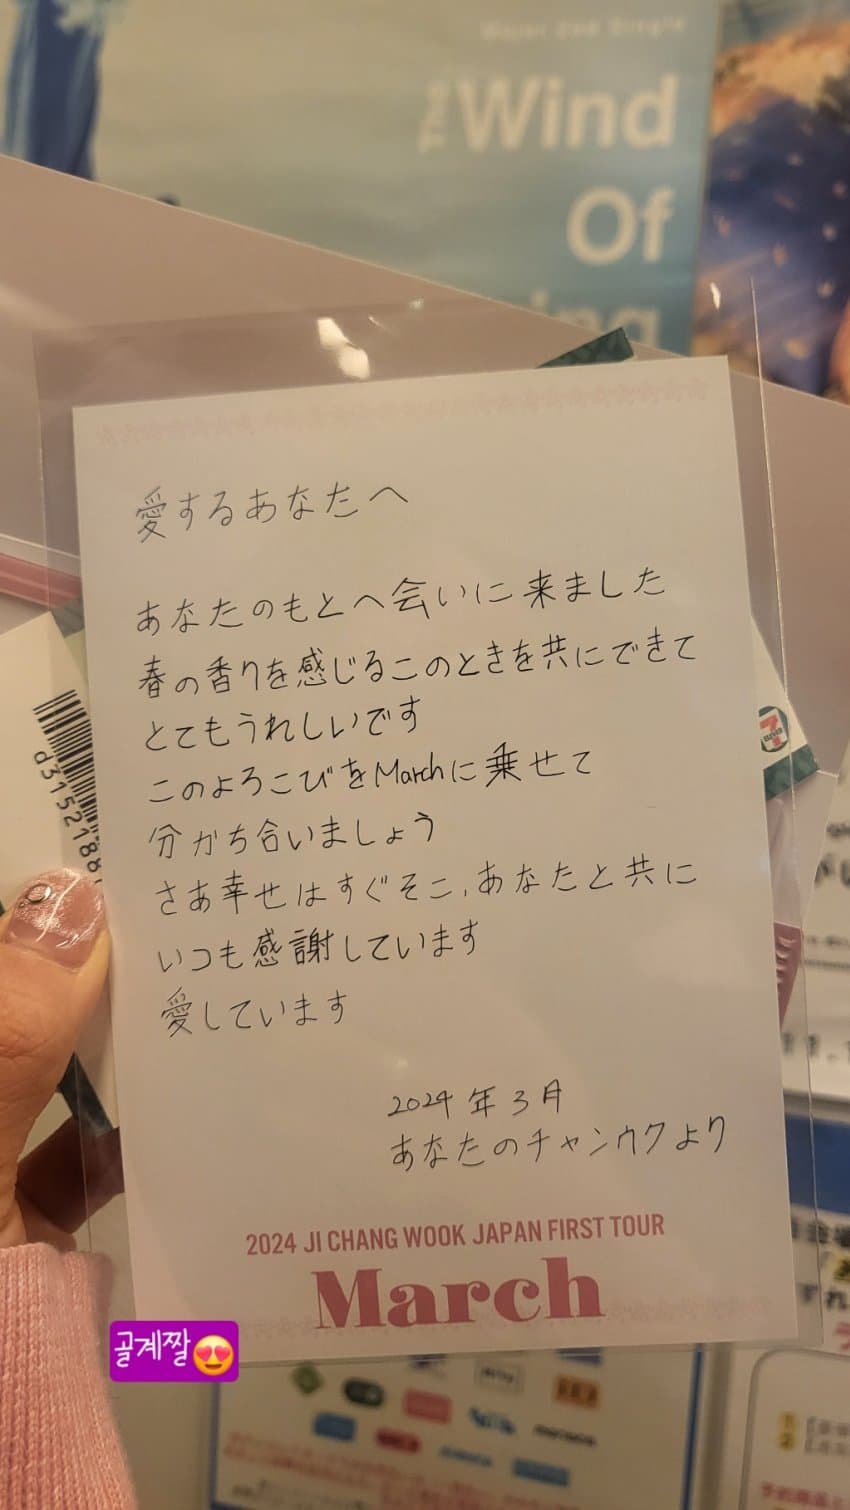 Major 2nd Single
The Wind
Of
愛するあなたへ
あなたのもとへ会いに来ました
春の香りを感じるこのときを共にできて
とてもうれしいです
このよろこびをMarchに乗せて
分かち合いましょう
さあ幸せはすぐそこ、あなたと共に
いつも感謝しています
愛しています
2024年3月
あなたのチャンウクより
2024 JI CHANG WOOK JAPAN FIRST TOUR
March
d3152188
골계짤😍